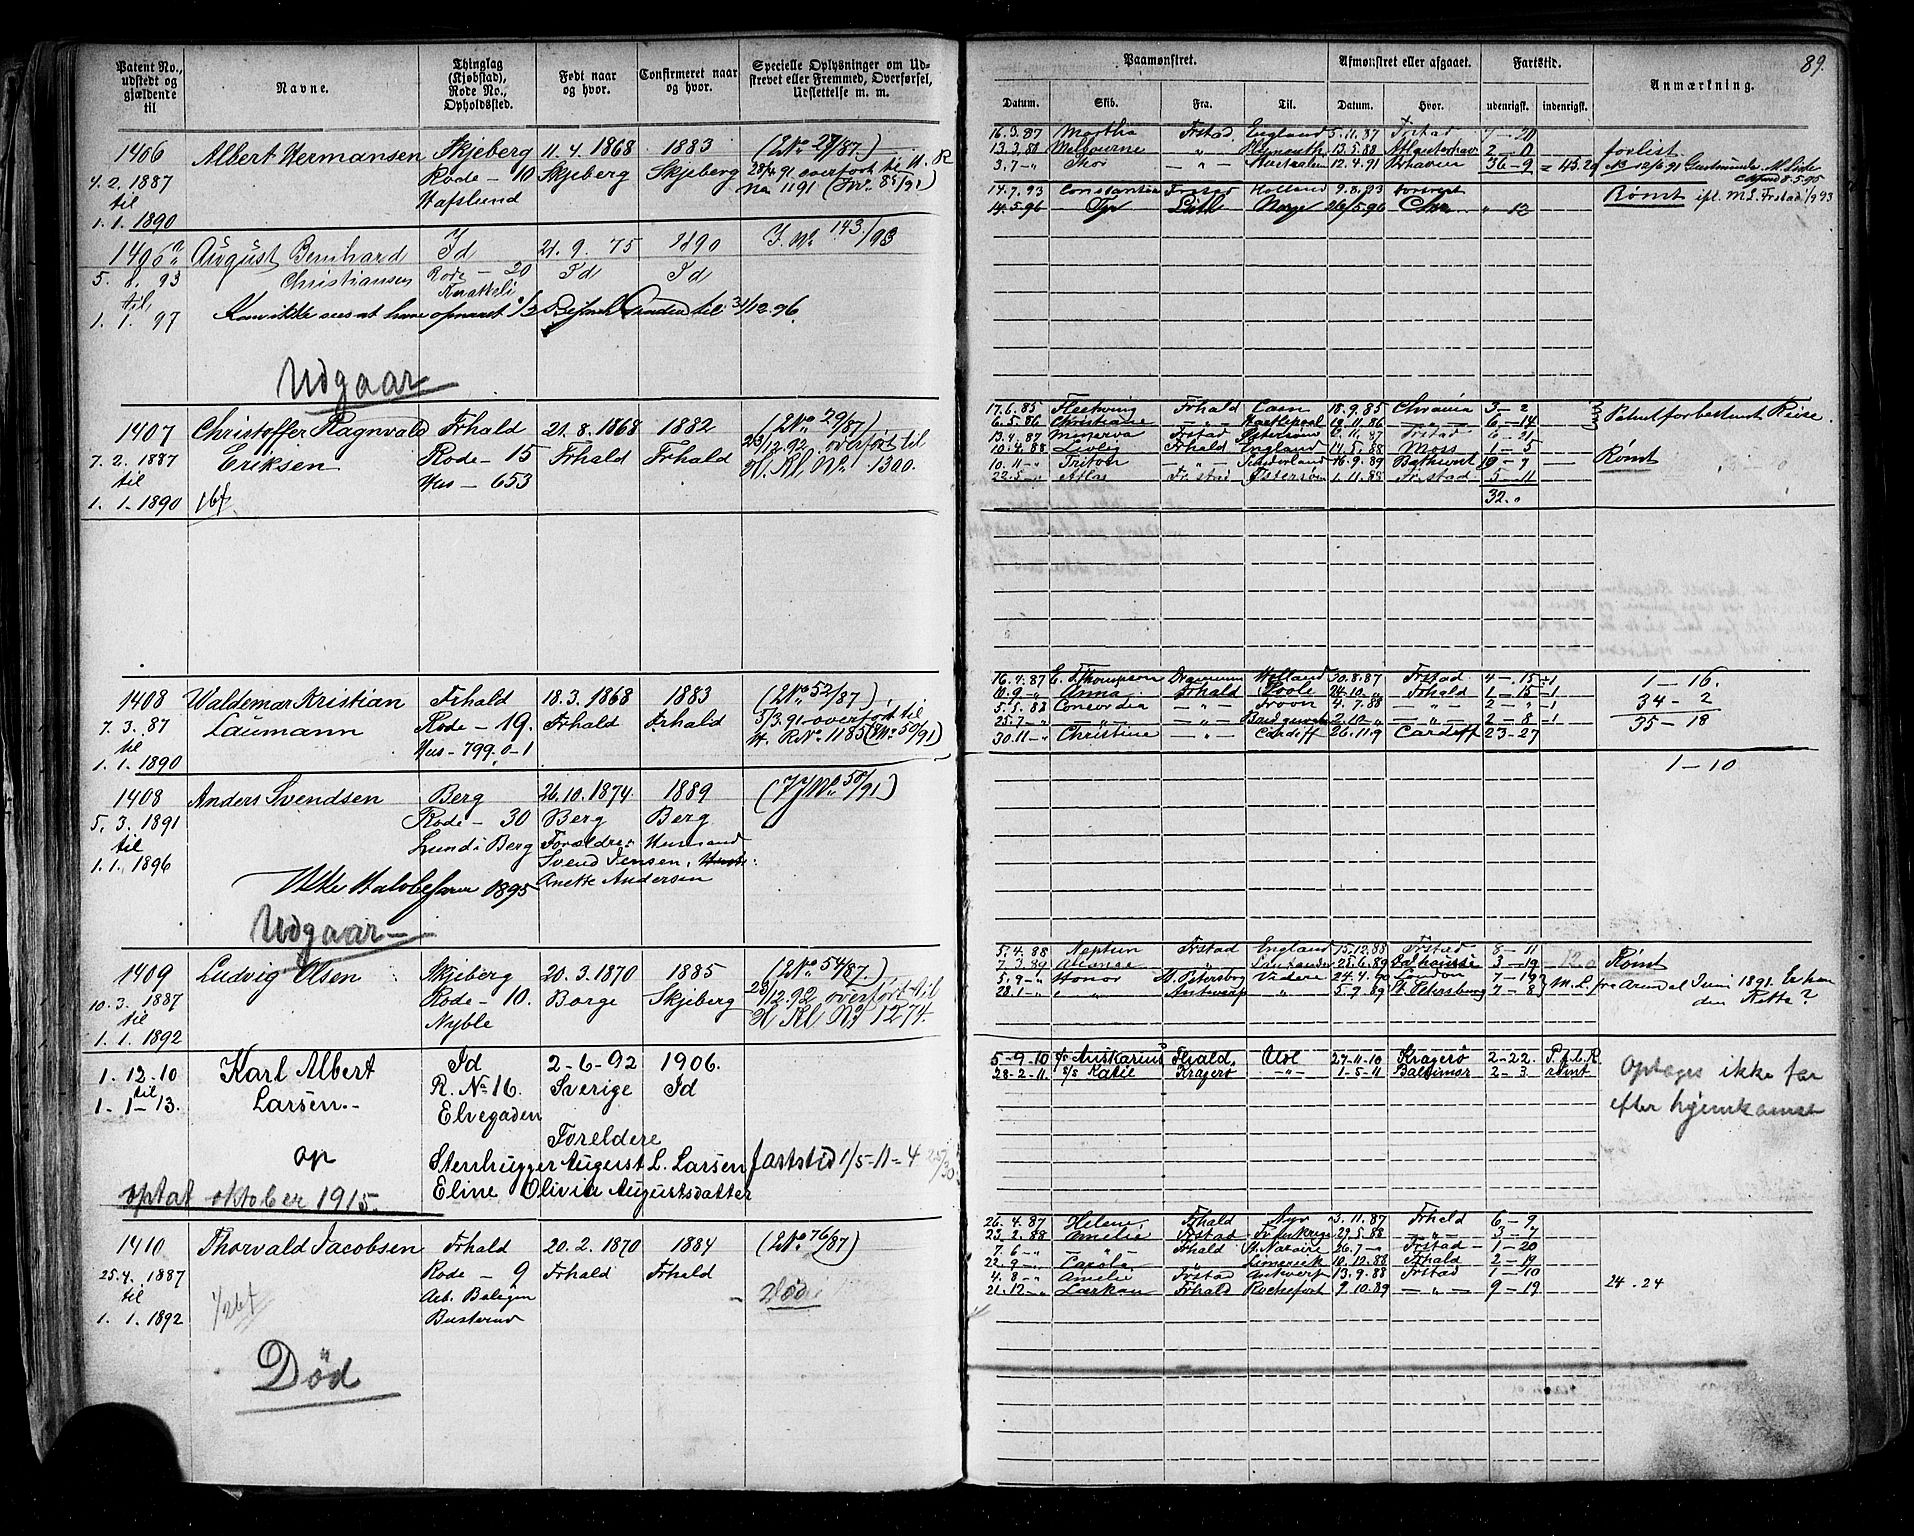 Patent No., udstedt og gjældende til
Navne.
Thinglag (Kjøbstad), Rode No., Opholdssted.
Født naar og hvor.
Confirmeret naar og hvor.
Specielle Oplysninger om Udskrevet eller Fremmed, Overførsel, Udslettelse m. m.
1406 Albert Hermansen Skjeberg 11. 4. 1868 1883 (No 27/87.)
4. 2. 1887 Rode - 10 Skjeberg Skjeberg 28/4 91 overført til H. R
til Hafslund No 1191 (No 85/91)
1. 1. 1890
1406 a August Bernhard Id 21. 9. 75 1890 J. No 143/93
5. 8. 93 Christiansen Rode - 20 Id Id
til Knatteli
1. 1. 97 Kan ikke sees at have til 31/12 96.
Udgaar
1407 Christoffer Ragnvald Frhald 21. 8. 1868 1882 (No 29/87)
7. 2. 1887 Eriksen Rode - 15 Frhald Frhald 23/12. 92. overført til
til Hus - 653 H. Kl. No 1300.
1. 1. 1890
1408 Waldemar Kristian Frhald 18. 3. 1868 1883 (No 52/87)
7. 3. 87 Laumann Rode - 19. Frhald Frhald 5/3. 91 overført til
til Hus - 799. 0 - 1 H. R No 1185 (No 50/91)
1. 1. 1890
1408 Anders Svendsen Berg 26. 10. 1874. 1889 (J No 58/91)
5. 3. 1891 Rode - 30 Berg Berg
til Lund i Berg Forældre: Husmand
1. 1. 1896 Svend Jensen,
Ikke 1895 Anette Andersen
Udgaar
1409 Ludvig Olsen Skjeberg 20. 3. 1870 1885 (No 54/87.)
10. 3. 1887 Rode - 10. Borge Skjeberg 23/12. 92 overført til
til Nyble H Kl No 1274.
1. 1. 1892
1. 12. 10 Karl Albert Id 2-6-92 1906.
til Larsen. R. No 16. Sverige Id
1. 1 - 13. Elvegaden
Foreldre
op Stenhugger August L. Larsen fartstid 1/5-11 = 4
optat oktober 1915. Eline Olivia Augustsdatter
1410 Thorvald Jacobsen Frhald 20. 2. 1870 1884 (No 76/87)
25. 4. 1887 Rode - 9 Frhald Frhald
til Arb. Boligen Død
1. 1. 1892 Busterud
Død
89.
Paamønstret. Afmønstret eller afgaaet. Fartstid. Anmærkning.
Datum. Skib. Fra. Til. Datum. Hvor. udenrigsk. indenrigsk.
16. 3. 87 Martha Frstad England 5. 11. 87 Frstad 7 - 20
13. 3. 88 Melbourne " Plymouth 13. 5. 88 2 - 0 forlist
3. 7 - " Thor - " - Australien 12. 4. 91 36 - 9
14. 7. 93 Constantia Frstad Holland 9. 8. 93
14. 5. 96 Tyr Norge 26/5. 96 " 12 Rømt ifl. M. L. Frstad 1/9 93
17. 6. 85 Fleetwing Frhald Caen 18. 9. 85 Chrania 3 - 2 Patentforbestemt Reise.
6. 5. 86 Christiane - " - Hartlepool 18. 11. 86 - " - 6 - 14
13. 4. 87 Minerva Frstad 87 Frstad 6 - 21
10. 4. 88 Livlig Frhald England 14. 5. 88 Moss 1 - 5 Rømt
10. 11 - " Triton - " - Sunderland 16. 9. 89 Bathurst 10 - 7
22. 5 - " Atlas Frstad Østersøen 1. 11. 88 Frstad 5 - 11
32. "
16. 4. 87 C. Thompson Holland 30. 8. 87 Frstad 4 - 15 ÷ 1 1 - 16.
10. 9. - " Anna Frhald Poole 24. 10. " Frhald 1 - 15 - 1 34 - 2
5. 5. 88 Concordia - " - Troon 4. 7. 88 - " - 2 - " - 1 35 - 18
25. 7 - " - " - - " - Bridgewater 2. 10 " - " - 2 - 8 - 1
30. 11 - " Christine - " - Cardiff 26. 11. 9 Cardiff 23 - 27
1 - 10
5. 4. 88 Neptun Frstad England 15. 12. 88 Frstad 8 - 11
7. 3. 89 " 25. 6. 89 3 - 19 Rømt
5. 9 - " Honor St. Petersborg Videre 24. 4. 90 London 7 - 19 M. L. fra Arendal Juni 1891. Er han
28. 1 - " " Antwerp " 5. 9. 89 St. Petersburg 7 - 8 den Rette?
5-9-10 s/s Anskarius Frhald. Udl 27-11-10 Kragerø 2-22.
28-2-11. s/s Katie Kragerø - " - 1-5-11 Baltimor 2-3. rømt
Optages ikke før
efter hjemkomst
26. 4. 87 Helene Frhald Ayr 3. 11. 87 Frhald 6 - 9
23. 2. 88 Amelie Frstad 27. 5. 88 - " - 3 - 7
7. 6 - " - " - Frhald St. Nazaire 26. 7 - " Frstad 1 - 20
22. 9 - " Carola " Limerick 10. 12. 88 Frhald 2 - 19
4. 8 - " Amelie Frstad Antwerp 13. 9. 88 Frstad 1 - 10
21. 12 - " Lærkan Frhald Rochefort 9. 10. 89 - " - 9 - 19 24. 24